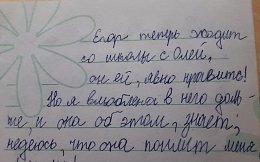 Егор теперь ходит
со школы с Олей,
он ей, явно нравится!
Но я влюблена в него доль-
ше, и она об этом, знает,
надеюсь, что она поймёт меня